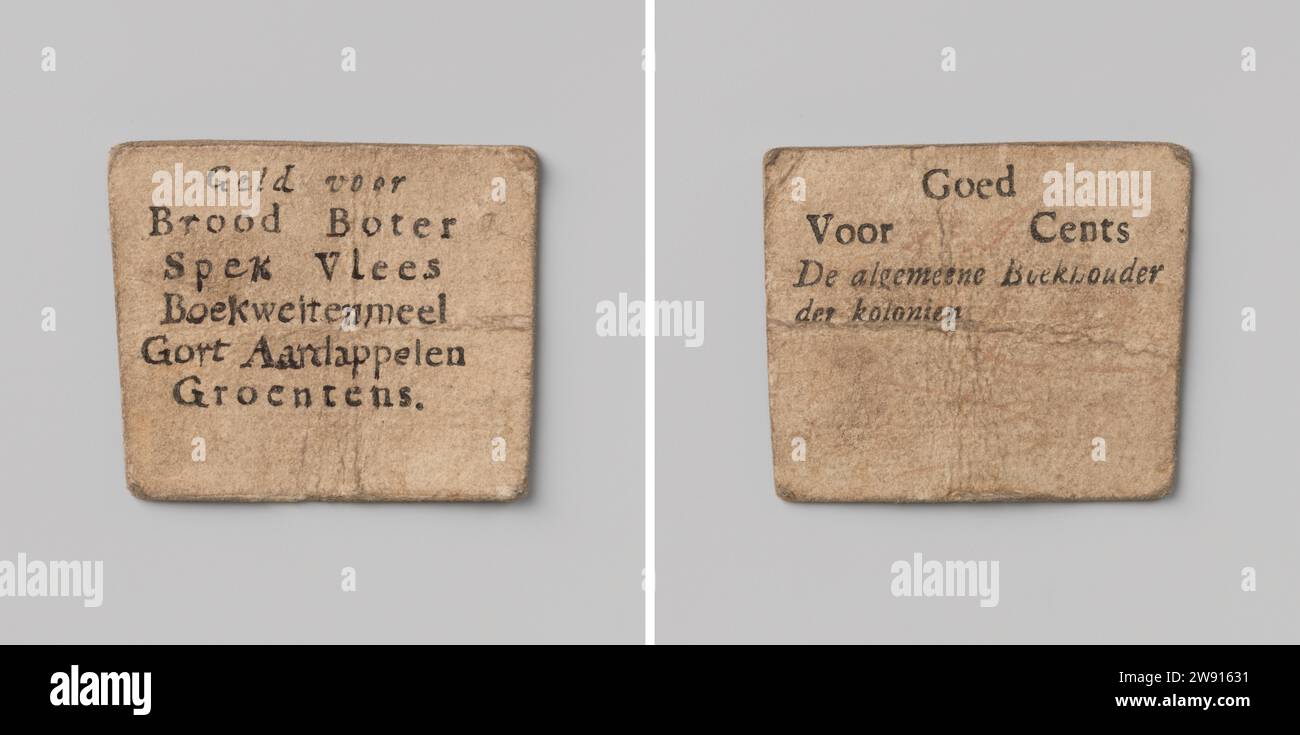 Geld voor
Brood Boter
Spek Vlees
Boekweitenmeel
Gort Aardappelen
Groentens.
Goed
Voor Cents
De algemeene Boekhouder
der kolonien
alamy
Image ID: 2W91631
www.alamy.com